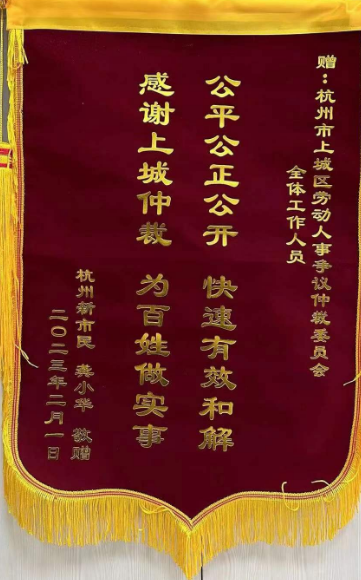 赠：杭州市上城区劳动人事争议仲裁委员会
全体工作人员
公平公正公开 快速有效和解
感谢上城仲裁 为百姓做实事
杭州新市民 龚小华 敬赠
二〇二三年二月一日